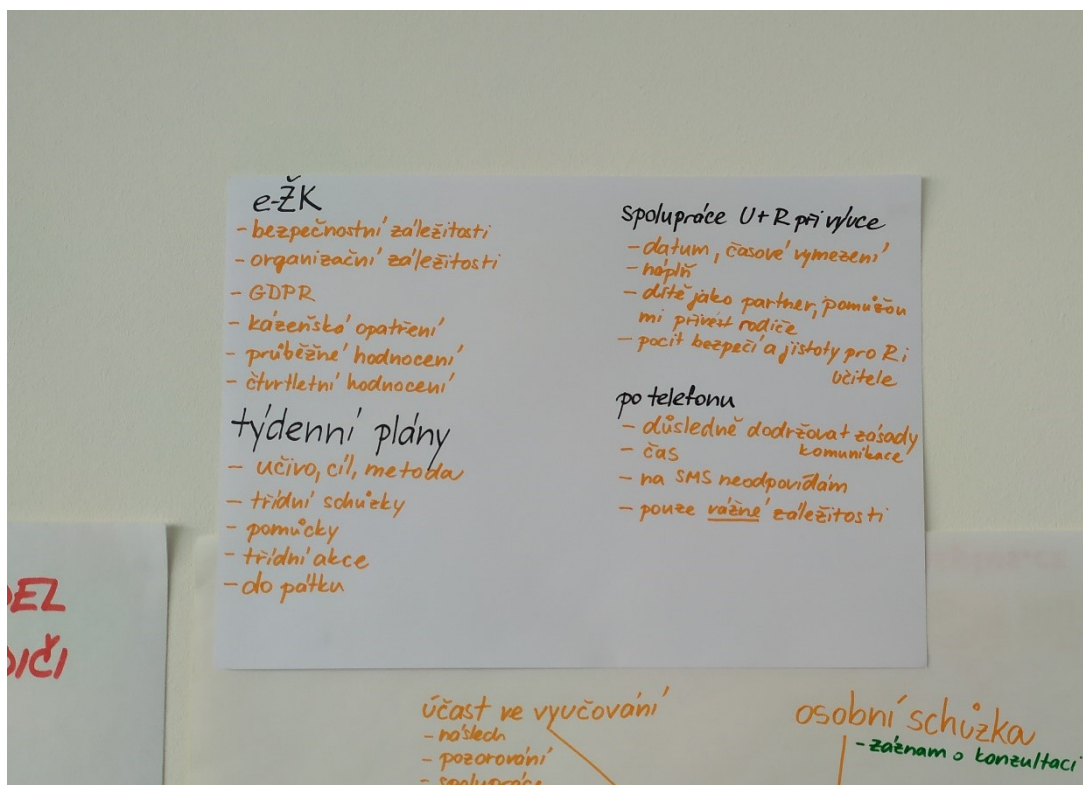 e-ŽK
- bezpečnostní záležitosti
- organizační záležitosti
- GDPR
- kázeňská opatření
- průběžné hodnocení
- čtvrtletní hodnocení
týdenní plány
- učivo, cíl, metoda
- třídní schůzky
- pomůcky
- třídní akce
- do pátku
spolupráce U+R při výuce
- datum, časové vymezení
- náplň
- dítě jako partner, pomůžou
mi přivést rodiče
- pocit bezpečí a jistoty pro R i
učitele
po telefonu
- důsledně dodržovat zásady
komunikace
- čas
- na SMS neodpovídám
- pouze vážné záležitosti
DEZ
DIČI
účast ve vyučování
- násled
- pozorování
- spolupráce
osobní schůzka
- záznam o konzultaci